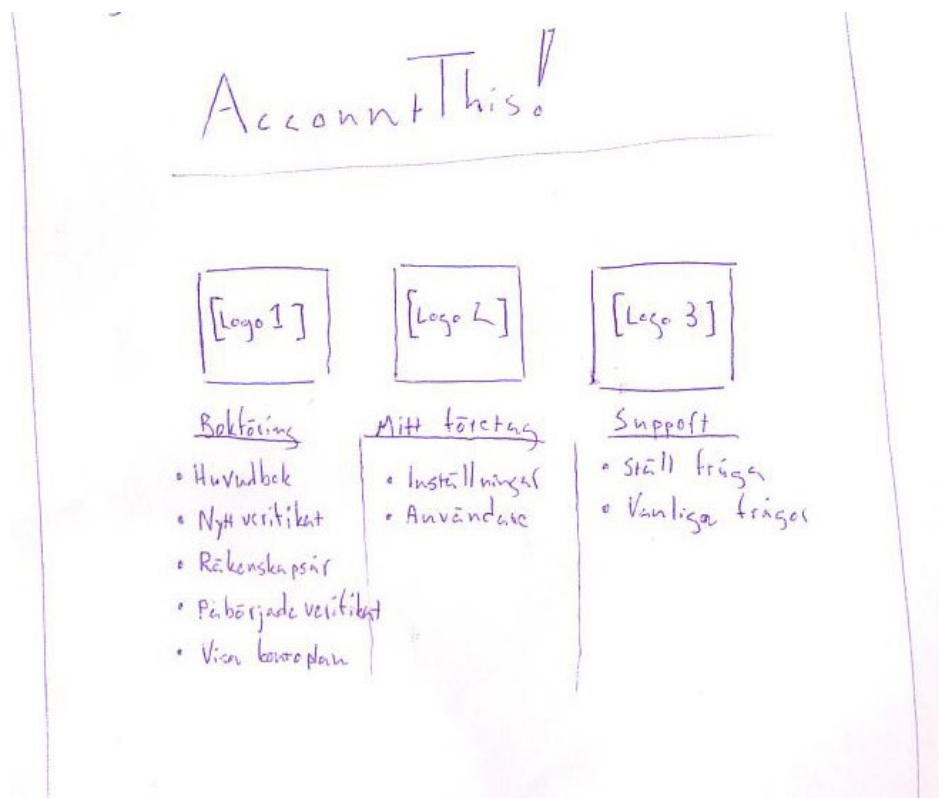 AccountThis!
[Logo 1]
[Logo 2]
[Logo 3]
Bokföring
• Huvudbok
• Nytt verifikat
• Räkenskapsår
• Påbörjade verifikat
• Visa kontoplan
Mitt företag
• Inställningar
• Användare
Support
• Ställ fråga
• Vanliga frågor